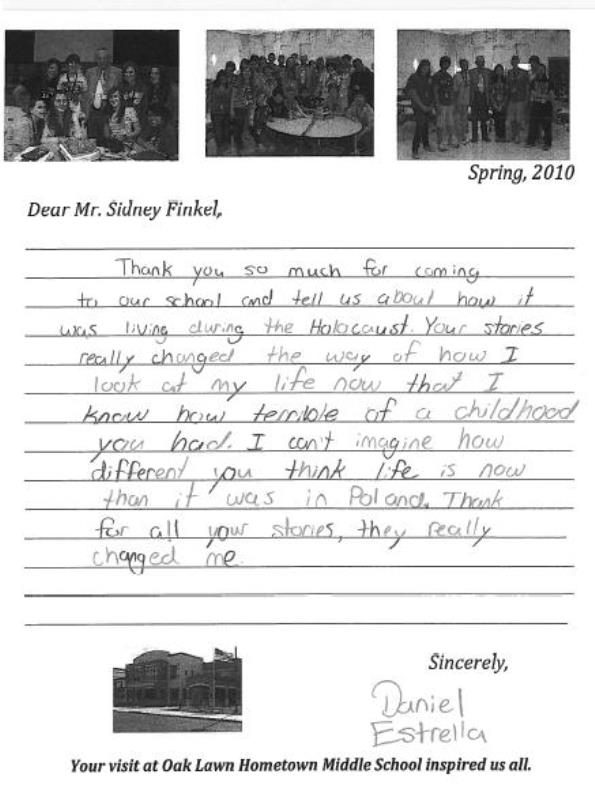 Spring, 2010
Dear Mr. Sidney Finkel,
Thank you so much for coming
to our school and tell us about how it
was living during the Holocaust. Your stories
really changed the way of how I
look at my life now that I
know how terrible of a childhood
you had. I can't imagine how
different you think life is now
than it was in Poland. Thank
for all your stories, they really
changed me.
Sincerely,
Daniel
Estrella
Your visit at Oak Lawn Hometown Middle School inspired us all.